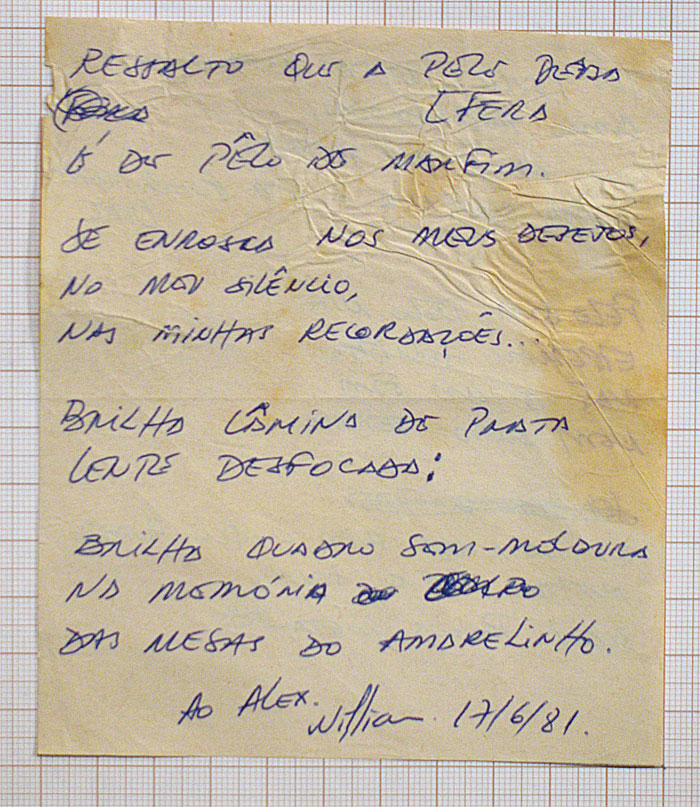 RESSALTO QUE A PELE DESSA
[FERA
É DE PÊLO DE MARFIM.
SE ENROSCA NOS MEUS DESEJOS,
NO MEU SILÊNCIO,
NAS MINHAS RECORDAÇÕES...
BRILHA LÂMINA DE PRATA
LENTE DESFOCADA:
BRILHA QUADRO SEM-MOLDURA
NA MEMÓRIA
DAS MESAS DO AMARELINHO.
AO ALEX. 17/6/81.